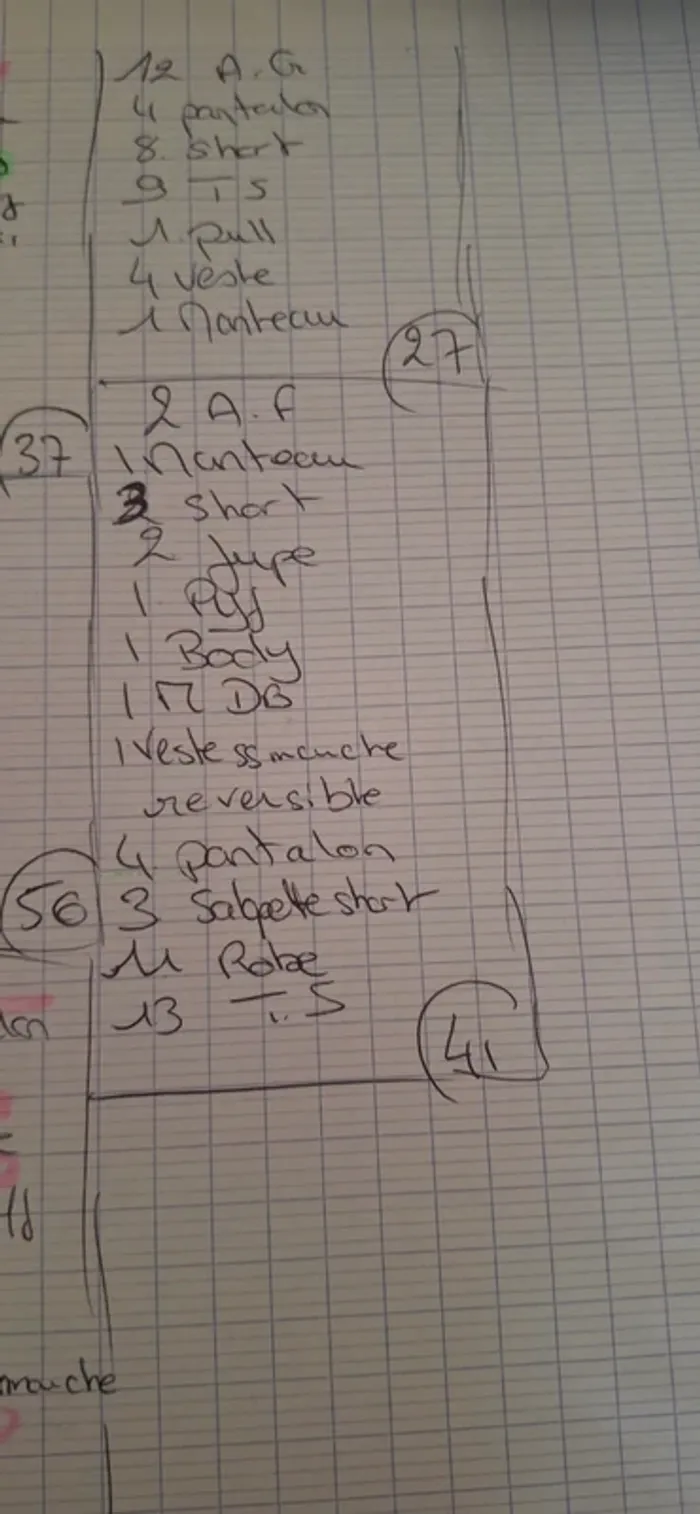 12 A.G
4 pantalon
8 short
9 T S
1 pull
4 veste
1 Manteau
27
2 A.F
37
1 Manteau
3 short
2 Jupe
1 Pyj
1 Body
1 M DB
1 Veste ss manche
reversible
4 pantalon
56
3 Salopette short
11 Robe
13 T.S
41
manche